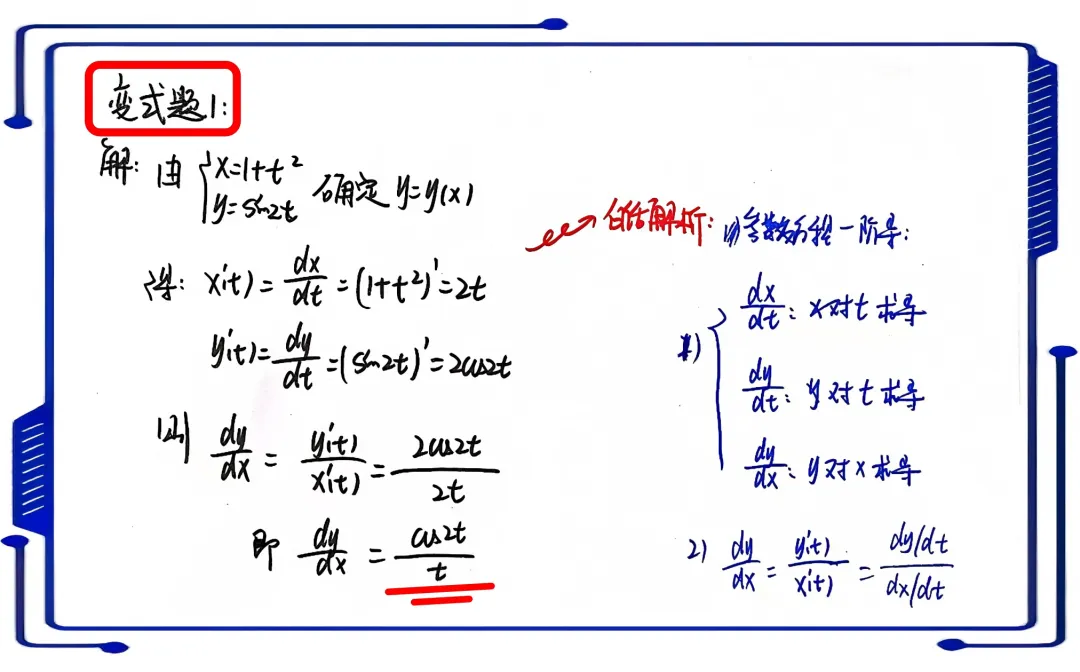 变式题1:
解: 由 { x=1+t²
y=sin2t 确定 y=y(x)
得: x'(t) = dx/dt = (1+t²)' = 2t
y'(t) = dy/dt = (sin2t)' = 2cos2t
则 dy/dx = y'(t)/x'(t) = 2cos2t/2t
即 dy/dx = cos2t/t
白话解析: (1)参数方程一阶导:
1) { dx/dt: x对t求导
dy/dt: y对t求导
dy/dx: y对x求导
2) dy/dx = y'(t)/x'(t) = dy/dt / dx/dt